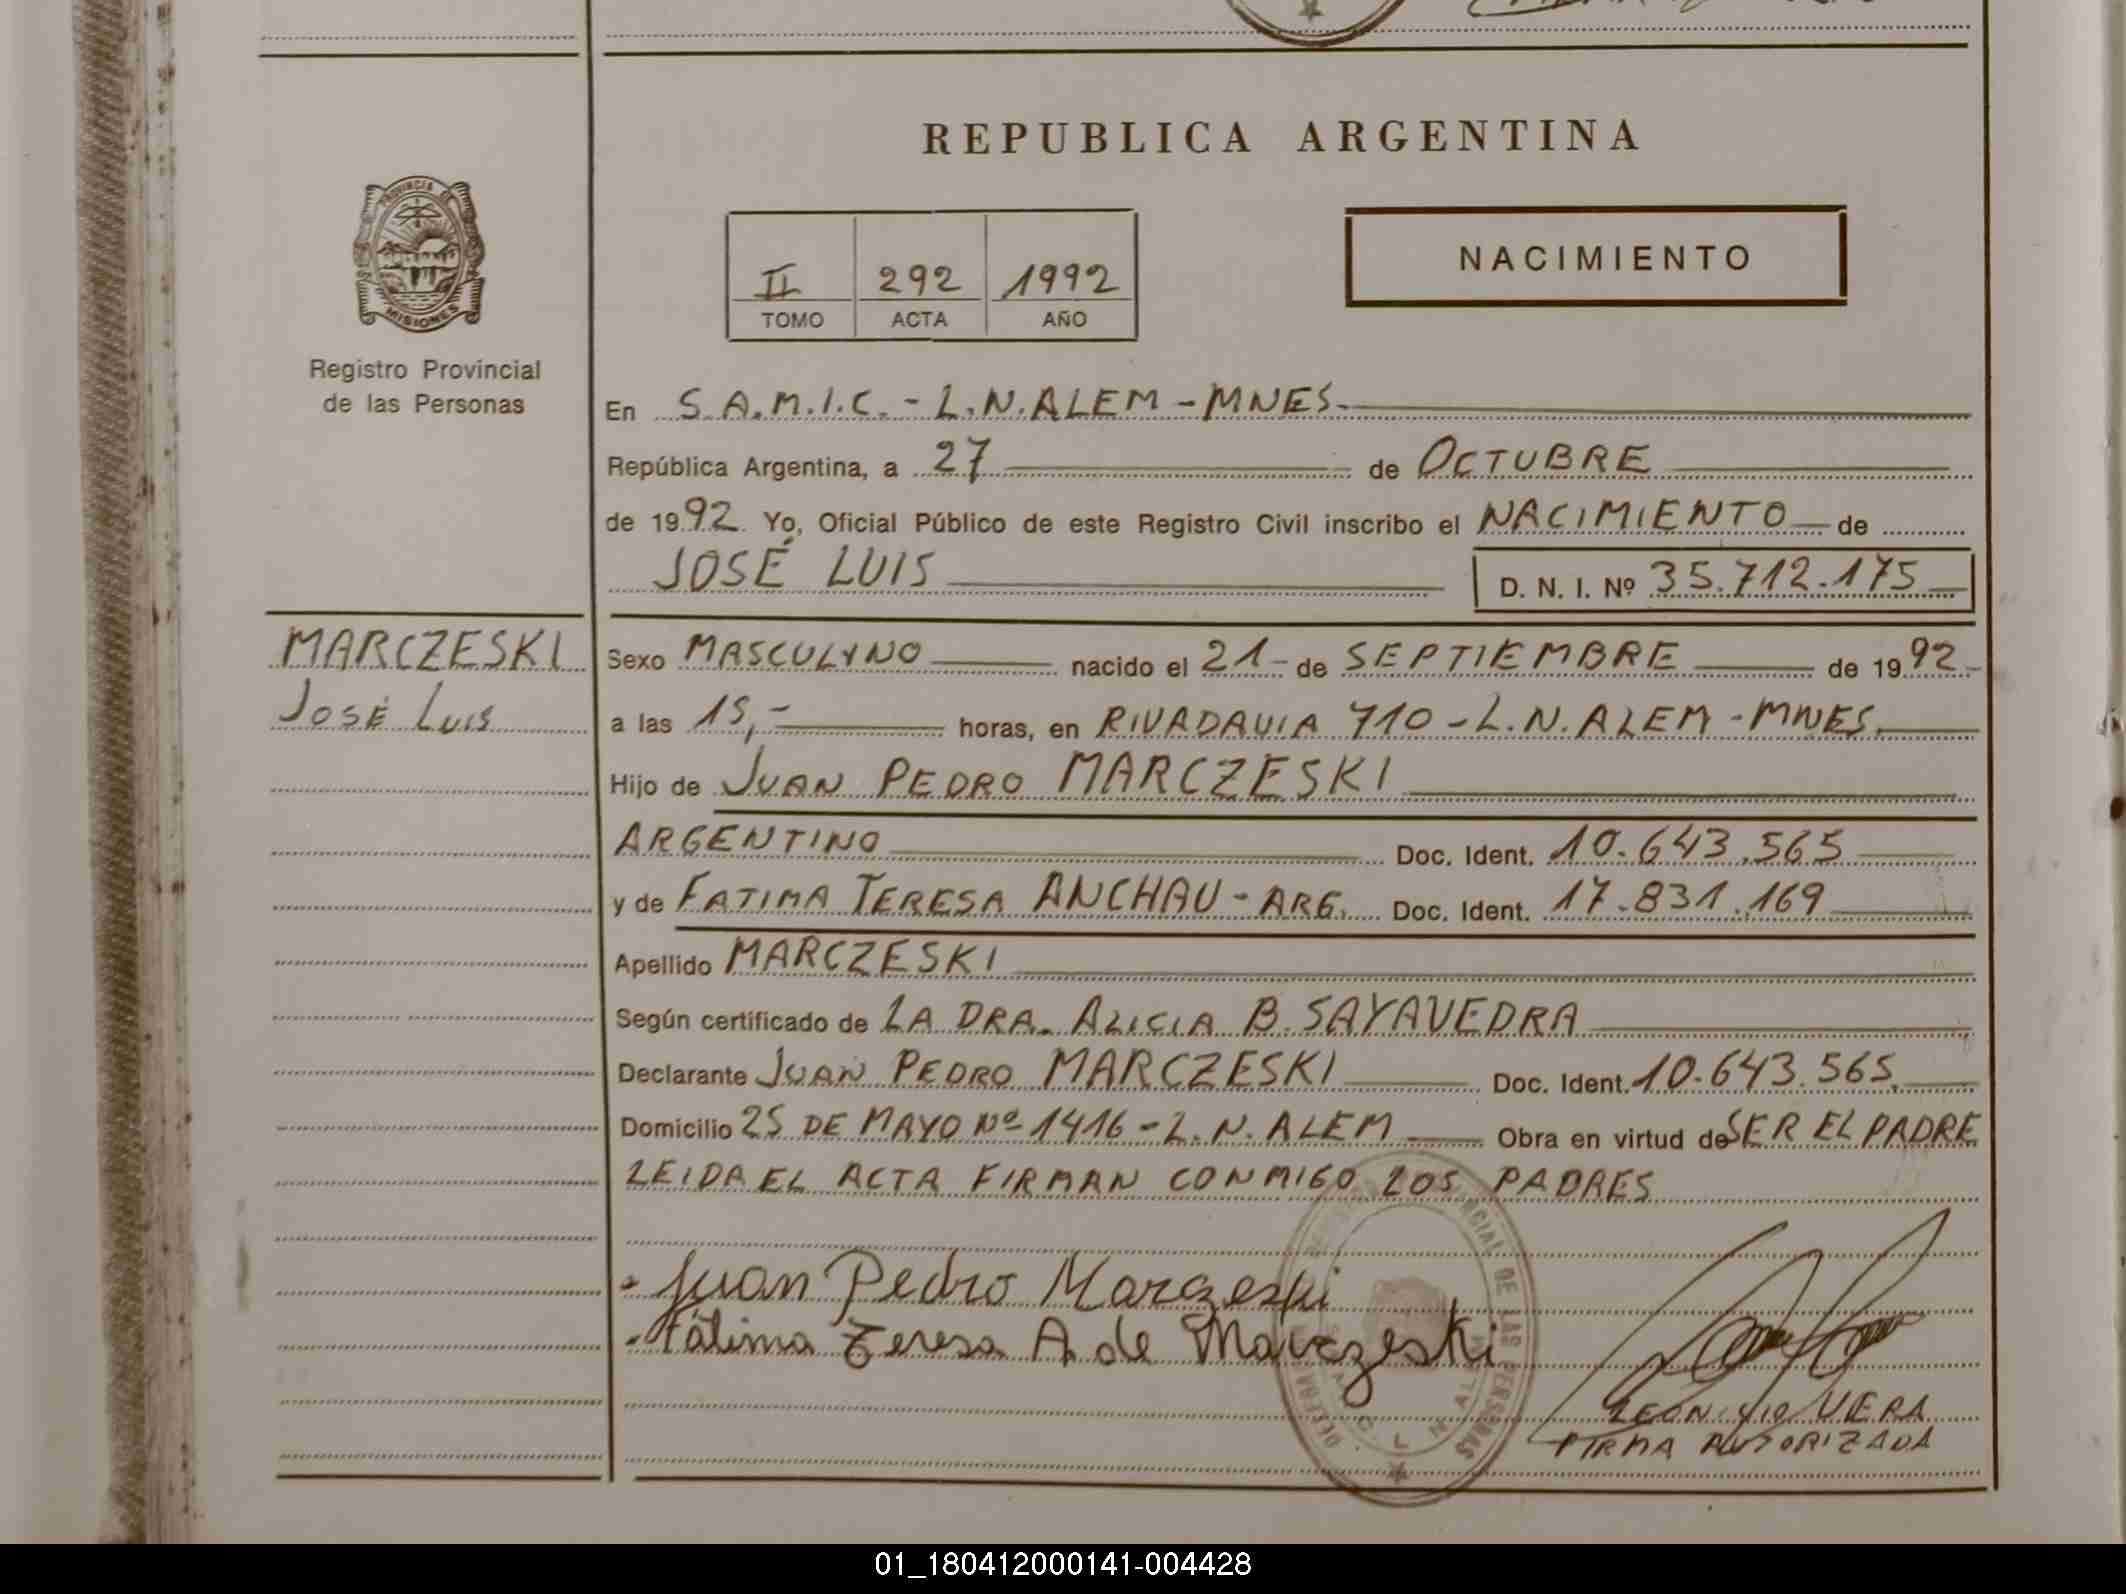 REPUBLICA ARGENTINA
PROVINCIA DE
MISIONES
Registro Provincial
de las Personas
II 292 1992
TOMO ACTA AÑO
NACIMIENTO
En S.A.M.I.C. - L.N.ALEM - MNES.
República Argentina, a 27 de OCTUBRE
de 1992. Yo, Oficial Público de este Registro Civil inscribo el NACIMIENTO de
JOSÉ LUIS D. N. I. Nº 35.712.175
MARCZESKI
JOSÉ LUIS
Sexo MASCULINO nacido el 21 de SEPTIEMBRE de 1992
a las 15,- horas, en RIVADAVIA 710 - L.N.ALEM - MNES.
Hijo de JUAN PEDRO MARCZESKI
ARGENTINO Doc. Ident. 10.643.565
y de FATIMA TERESA ANCHAU - ARG. Doc. Ident. 17.831.169
Apellido MARCZESKI
Según certificado de LA DRA. ALICIA B. SAYAVEDRA
Declarante JUAN PEDRO MARCZESKI Doc. Ident. 10.643.565.
Domicilio 25 DE MAYO Nº 1416 - L.N. ALEM Obra en virtud de SER EL PADRE
LEIDA EL ACTA FIRMAN CONMIGO LOS PADRES
Juan Pedro Marczeski
Fátima Teresa A. de Marczeski
DE LAS PERSONAS
VERA
FIRMA AUTORIZADA
01_180412000141-004428